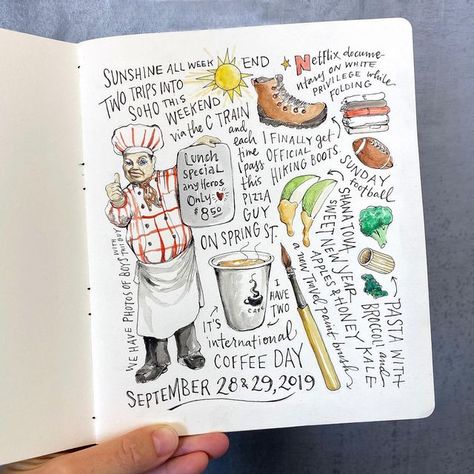 SUNSHINE ALL WEEK END
TWO TRIPS INTO
SOHO THIS
WEEKEND
via the C TRAIN
and
each
time
I pass
this
PIZZA
GUY
ON SPRING ST.
Lunch
special
any Heros
Only
$8.50
WE HAVE PHOTOS OF BOYS WITH THIS GUY
Netflix docume
ntary ON WHITE
PRIVILEGE while
FOLDING
I FINALLY get
OFFICIAL
HIKING BOOTS
SUNDAY
football
SHANA TOVA
SWEET NEW YEAR
APPLES & HONEY
a new travel paint brush
PASTA WITH
BROCCOLI and
KALE
CAFE
I
HAVE
TWO
IT'S
international
COFFEE DAY
SEPTEMBER 28 & 29, 2019